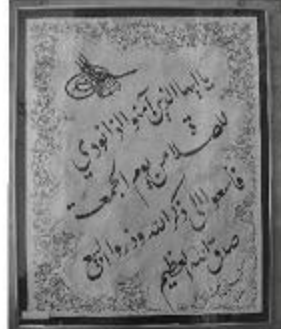 يا أيها الذين آمنوا إذا نودي
للصلاة من يوم الجمعة
فاسعوا إلى ذكر الله وذروا البيع
صدق الله العظيم